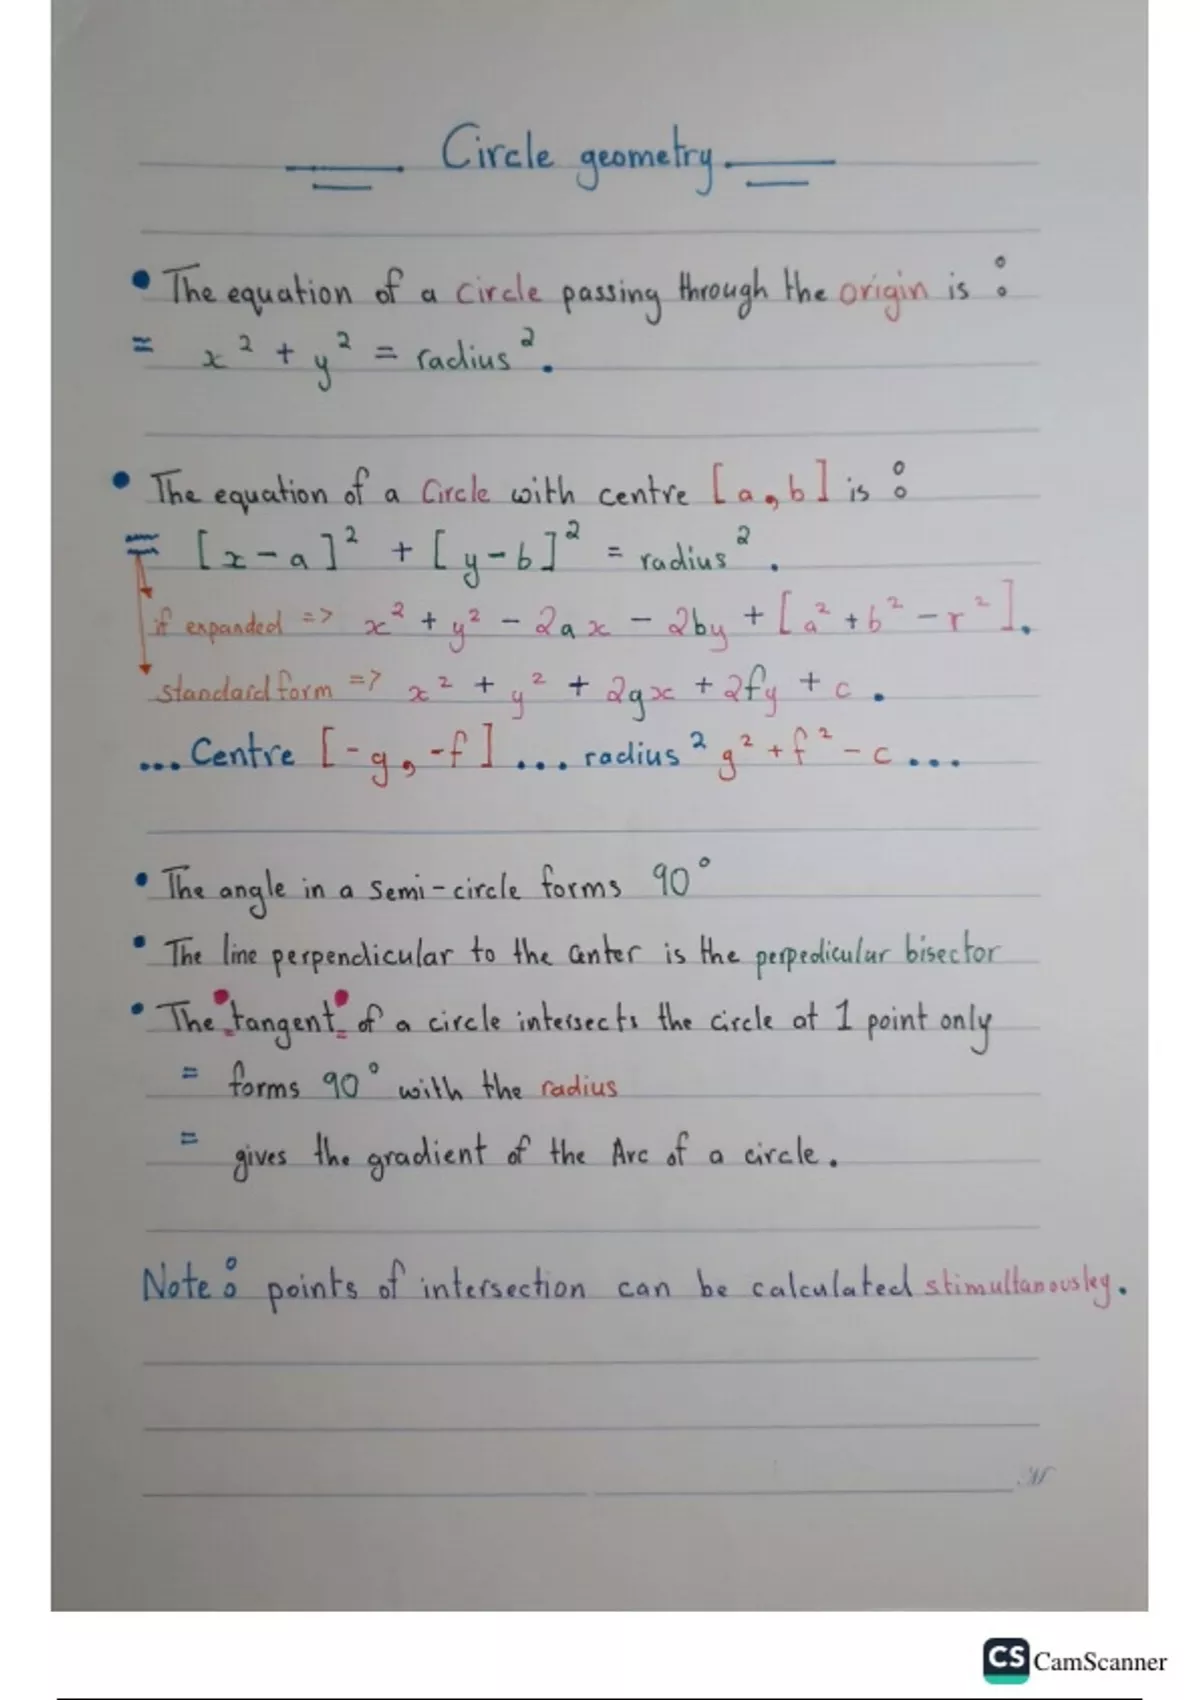 Circle geometry.
• The equation of a circle passing through the origin is :
= x² + y² = radius².
• The equation of a Circle with centre [a,b] is :
= [x-a]² + [y-b]² = radius².
if expanded => x² + y² - 2ax - 2by + [a² + b² - r²].
standard form => x² + y² + 2gx + 2fy + c.
... Centre [-g,-f] ... radius² g² + f² - c ...
• The angle in a semi-circle forms 90°
• The line perpendicular to the center is the perpedicular bisector
• The "tangent" of a circle intersects the circle at 1 point only
= forms 90° with the radius
= gives the gradient of the Arc of a circle.
Note: points of intersection can be calculated stimultanously.
CS CamScanner